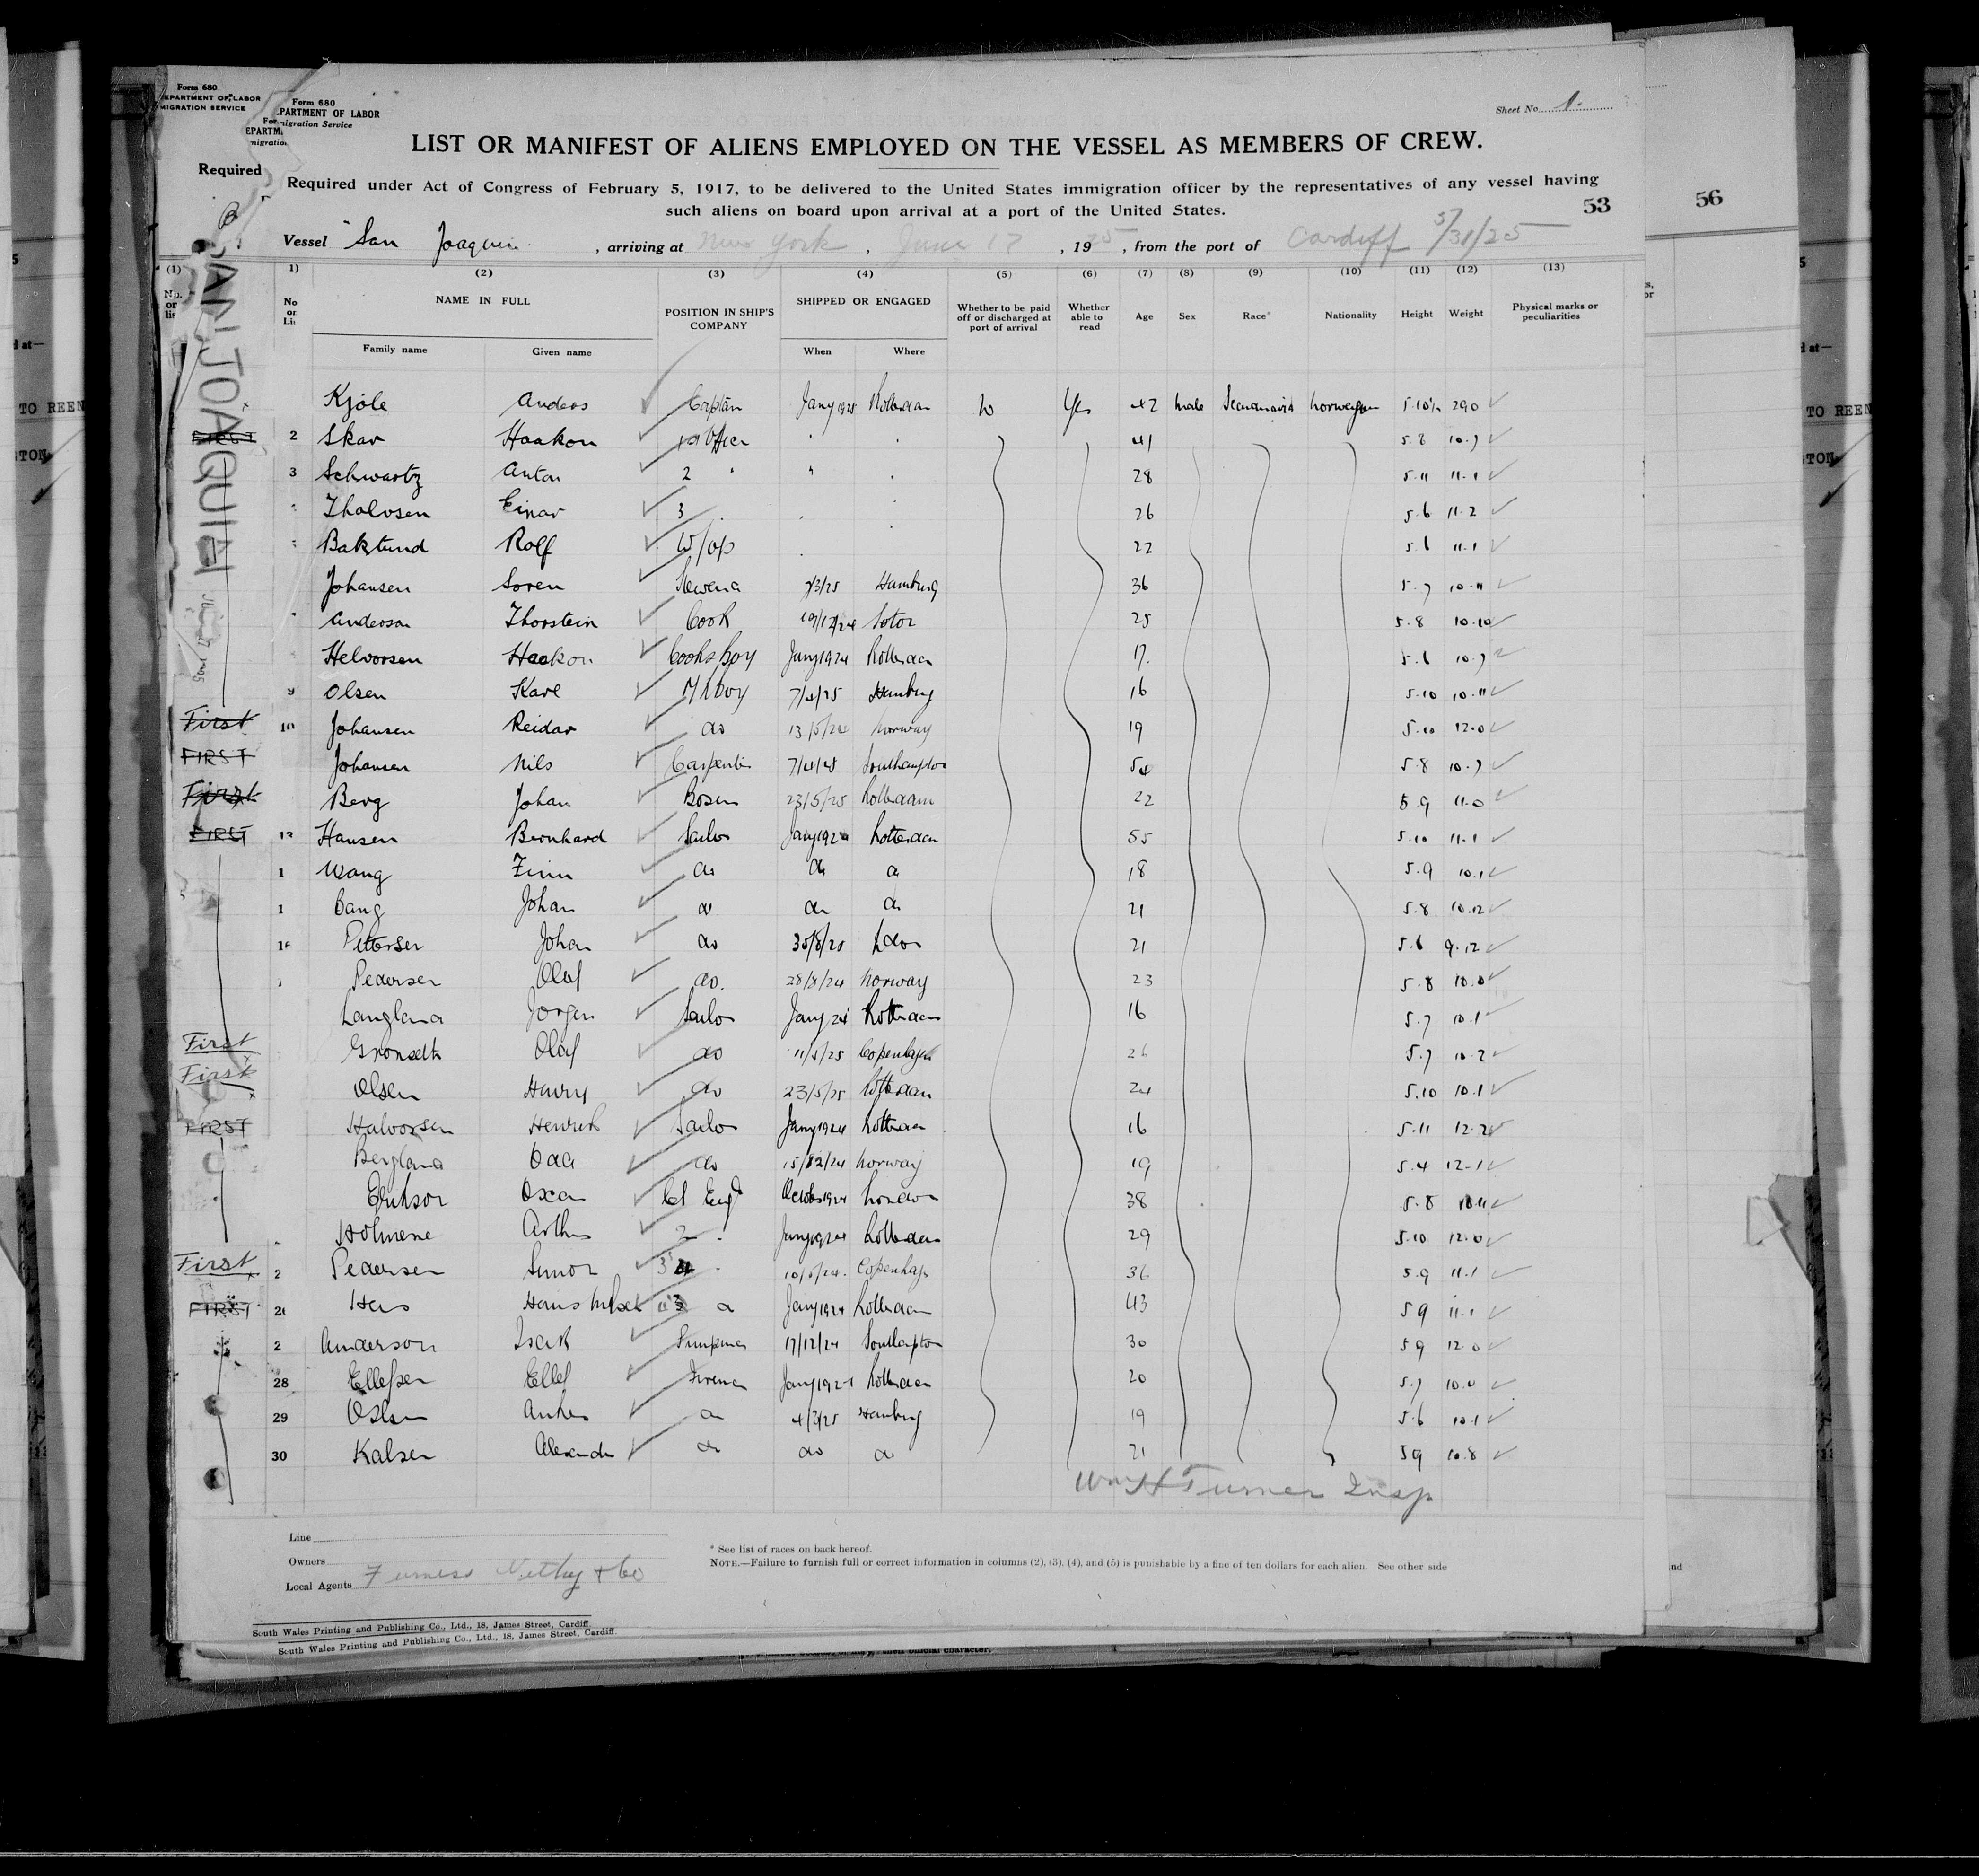 Form 680
DEPARTMENT OF LABOR
IMMIGRATION SERVICE
Form 680
DEPARTMENT OF LABOR
Immigration Service
Sheet No. 1.
LIST OR MANIFEST OF ALIENS EMPLOYED ON THE VESSEL AS MEMBERS OF CREW.
Required
Required under Act of Congress of February 5, 1917, to be delivered to the United States immigration officer by the representatives of any vessel having
such aliens on board upon arrival at a port of the United States.
53
56
Vessel San Joaquin, arriving at New York, June 17, 1925, from the port of Cardiff 5/31/25
SAN JOAQUIN
(1) (2) (3) (4) (5) (6) (7) (8) (9) (10) (11) (12) (13)
NAME IN FULL POSITION IN SHIP'S COMPANY SHIPPED OR ENGAGED Whether to be paid off or discharged at port of arrival Whether able to read Age Sex Race* Nationality Height Weight Physical marks or peculiarities
Family name Given name When Where
Kjole Anders Captan Jany 1925 Rotterdam No Yes 42 male Scandinavia Norwegian 5.10½ 290
FIRST 2 Skar Haakon 1st Officer 41 5.8 10.7
3 Schwartz Anton 2 " " 28 5.11 11.1
Thalvsen Einar 3 26 5.6 11.2
Baklund Rolf W/op 22 5.6 11.1
Johansen Soren 3/3/25 Hamburg 36 5.7 10.11
Anderson Thorstein Cook 10/12/24 25 5.8 10.10
Helvorsen Haakon Cooks boy Jany 1924 Rotterdam 17 5.6 10.7
9 Olsen Karl 7/4/25 Hamburg 16 5.10 10.11
First 10 Johansen Reidar do 13/5/24 Norway 19 5.10 12.0
FIRST Johansen Nils Carpenter Southampton 54 5.8 10.7
First Berg Johan Bosen 23/5/25 Rotterdam 22 5.9 11.0
FIRST 13 Hansen Bernhard Sailor Jany 1924 Rotterdam 55 5.10 11.1
Wang Finn do do do 18 5.9 10.1
Bang Johan do do do 21 5.8 10.12
16 Pettersen Johan do 21 5.6 9.12
Pedersen Olaf do. 28/8/24 Norway 23 5.8 10.0
Langland Jorgen Sailor Jany 24 Rotterdam 16 5.7 10.1
First Gronseth Olaf do 11/5/25 Copenhagen 26 5.7 10.2
First Olsen Harry do 23/5/25 Rotterdam 24 5.10 10.1
FIRST Halvorsen Henrik Sailor Jany 1924 Rotterdam 16 5.11 12.2
Bergland Odd do 15/12/24 Norway 19 5.4 12.1
Erikson Oscar Ch Eng October 1924 London 38 5.8 10.11
Holmene Arthur 2 Jany 1924 Rotterdam 29 5.10 12.0
First 2 Pedersen Simon 3 10/5/24. Copenhagen 36 5.9 11.1
FIRST 26 Hans Jany 1924 Rotterdam 43 5 9 11.1
2 Anderson Isak Pumpman 17/12/24 Southampton 30 5 9 12.0
28 Ellefsen Ellef Fireman Jany 1924 Rotterdam 20 5.7 10.0
29 Olsen do 4/3/25 Hamburg 19 5.6 10.1
30 Kalsen Alexander do do do 21 5 9 10.8
Wm H Turner Insp
Line
Owners
Local Agents Furness Withy & Co
* See list of races on back hereof.
NOTE.—Failure to furnish full or correct information in columns (2), (3), (4), and (5) is punishable by a fine of ten dollars for each alien. See other side
South Wales Printing and Publishing Co., Ltd., 18, James Street, Cardiff.
South Wales Printing and Publishing Co., Ltd., 18, James Street, Cardiff.
TO REEN
TON